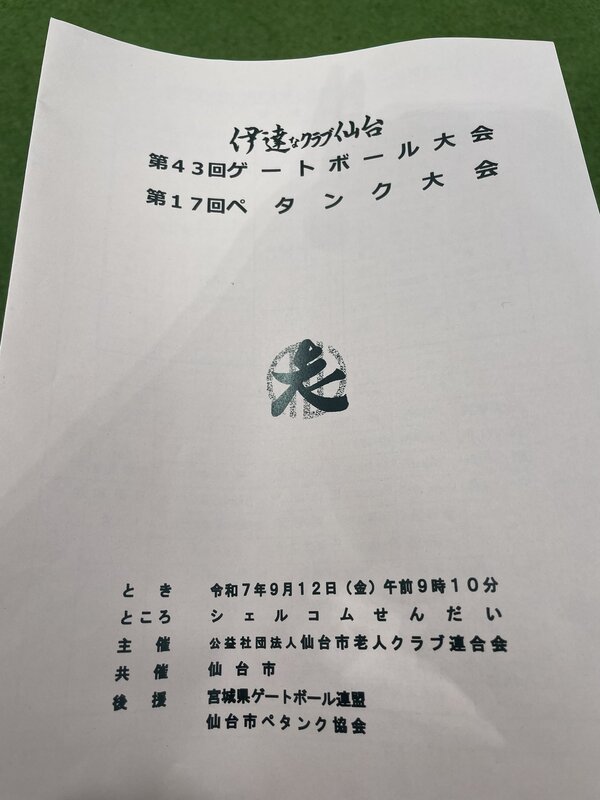 伊達なクラブ仙台
第43回ゲートボール大会
第17回ペタンク大会
老
とき 令和7年9月12日（金）午前9時10分
ところ シェルコムせんだい
主催 公益社団法人仙台市老人クラブ連合会
共催 仙台市
後援 宮城県ゲートボール連盟
仙台市ペタンク協会